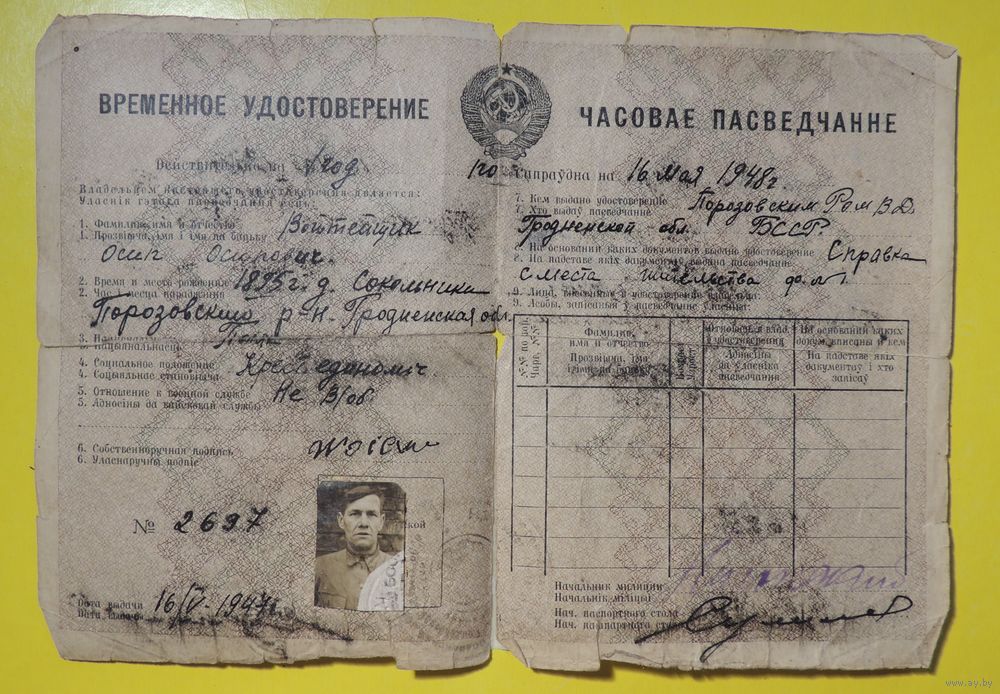 ВРЕМЕННОЕ УДОСТОВЕРЕНИЕ
Действительно на 1 год
Владельцем настоящего удостоверения является:
Уласнік гэтага пасведчання ёсць:
1. Фамилия, имя и отчество
1. Прозвішча, імя і імя па бацьку
Осип Осипович.
2. Время и место рождения 1895 г. д. Сокольники
2. Час і месца нараджэння
Порозовский р-н. Гродненская обл.
3. Национальность
3. Нацыянальнасць
4. Социальное положение
4. Сацыяльнае становішча
5. Отношение к военной службе Не В/об
5. Адносіны да вайсковай службы
6. Собственноручная подпись
6. Уласнаручны подпіс
№ 2697
Дата выдачи 16/V-1947г.
Дата выдачы
ЧАСОВАЕ ПАСВЕДЧАННЕ
Сапраўдна на 16 мая 1948 г.
7. Кем выдано удостоверение Порозовским
7. Хто выдаў пасведчанне
Гродненской обл. БССР
8. На основании каких документов выдано удостоверение Справка
8. На падставе якіх дакументаў выдана пасведчанне
с места жительства
9. Лица, вписанные в удостоверение владельца:
9. Асобы, запісаныя ў пасведчанне ўласніка:
№№ по пор.
Чарг. №№
Фамилия, имя и отчество
Прозвішча, імя і імя па бацьку
Возраст
Узрост
Отношение к влад. удостоверения
Адносіны да ўласніка пасведчання
На основании каких докум. вписаны и кем
На падставе якіх дакументаў і хто запісаў
Начальник милиции
Начальнік міліцыі
Нач. паспортного стола
Нач. пашпартнага стала
www.ay.by